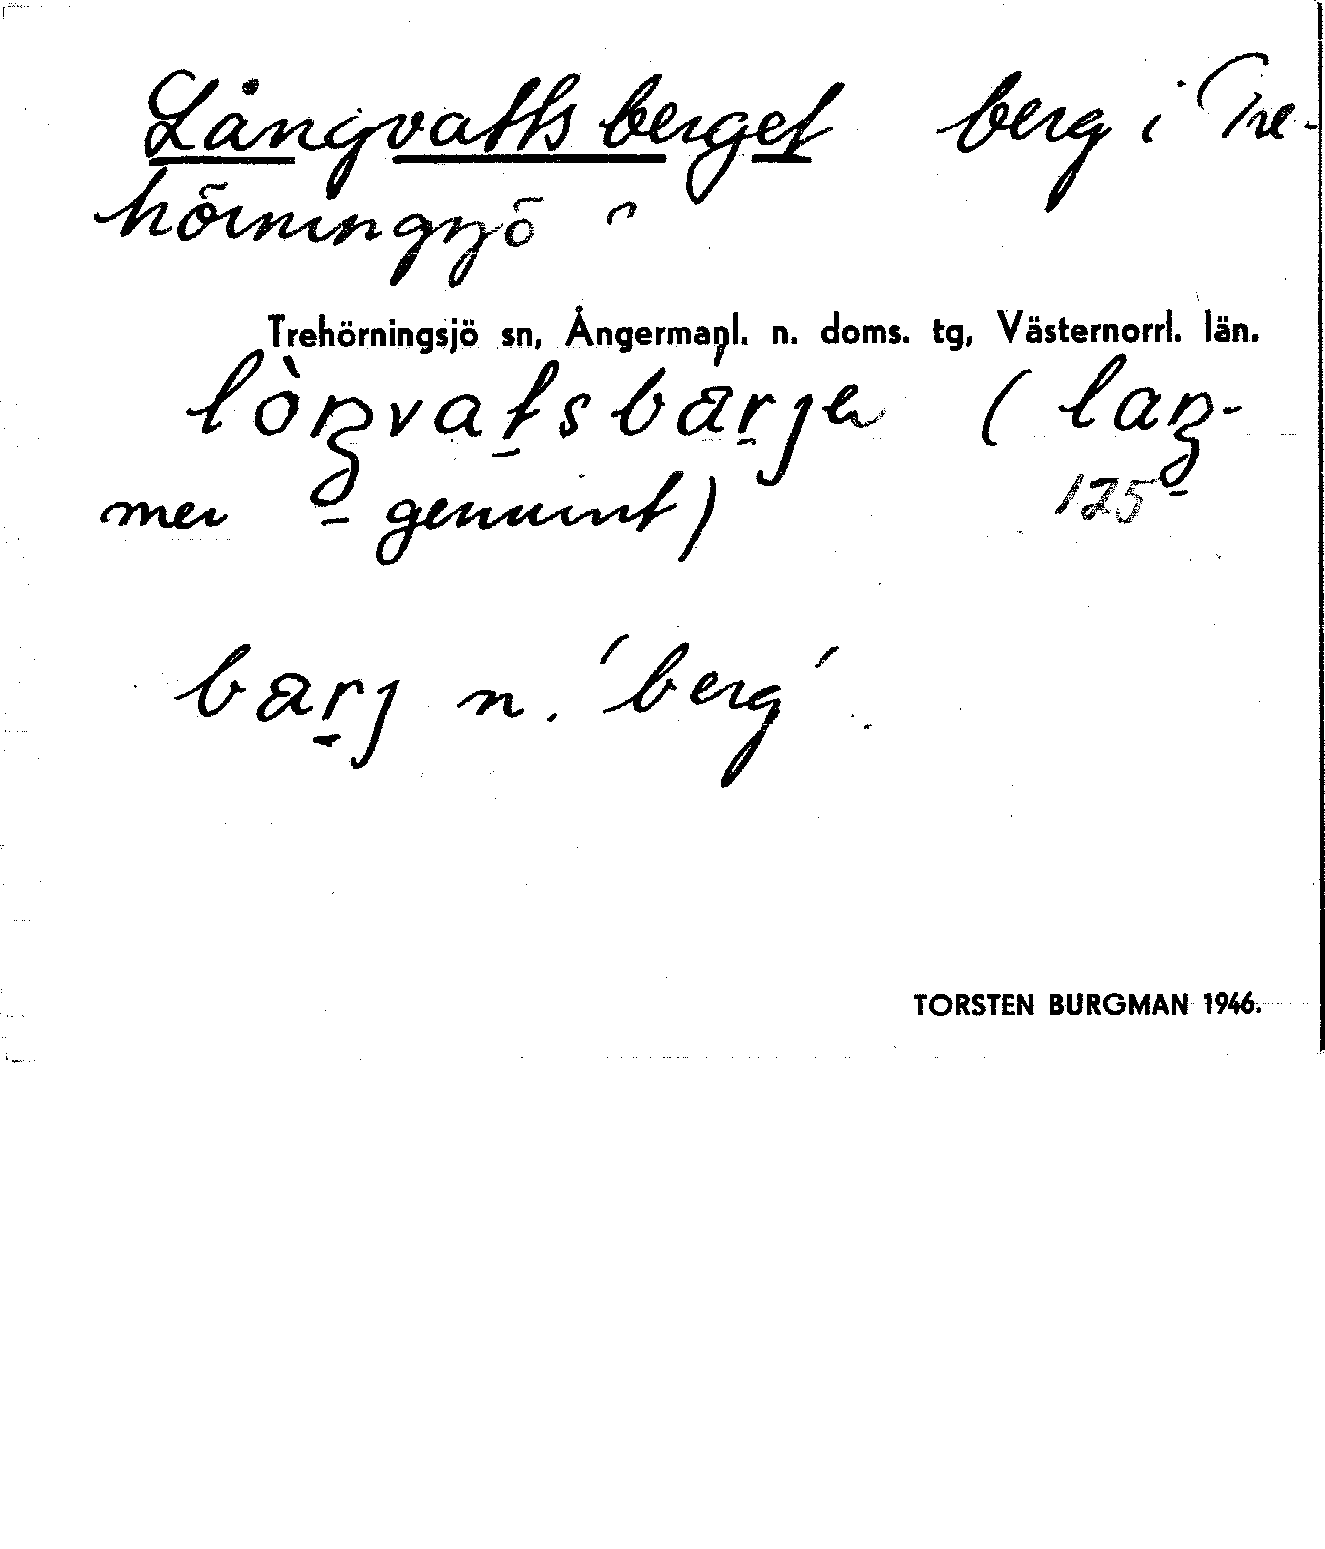 Långvattsberget berg i Tre-
hörningsjö
Trehörningsjö sn, Ångermanl. n. doms. tg, Västernorrl. län.
lòŋvatsbarje (laŋ-
mer genuint) 125
barj n. 'berg'.
TORSTEN BURGMAN 1946.